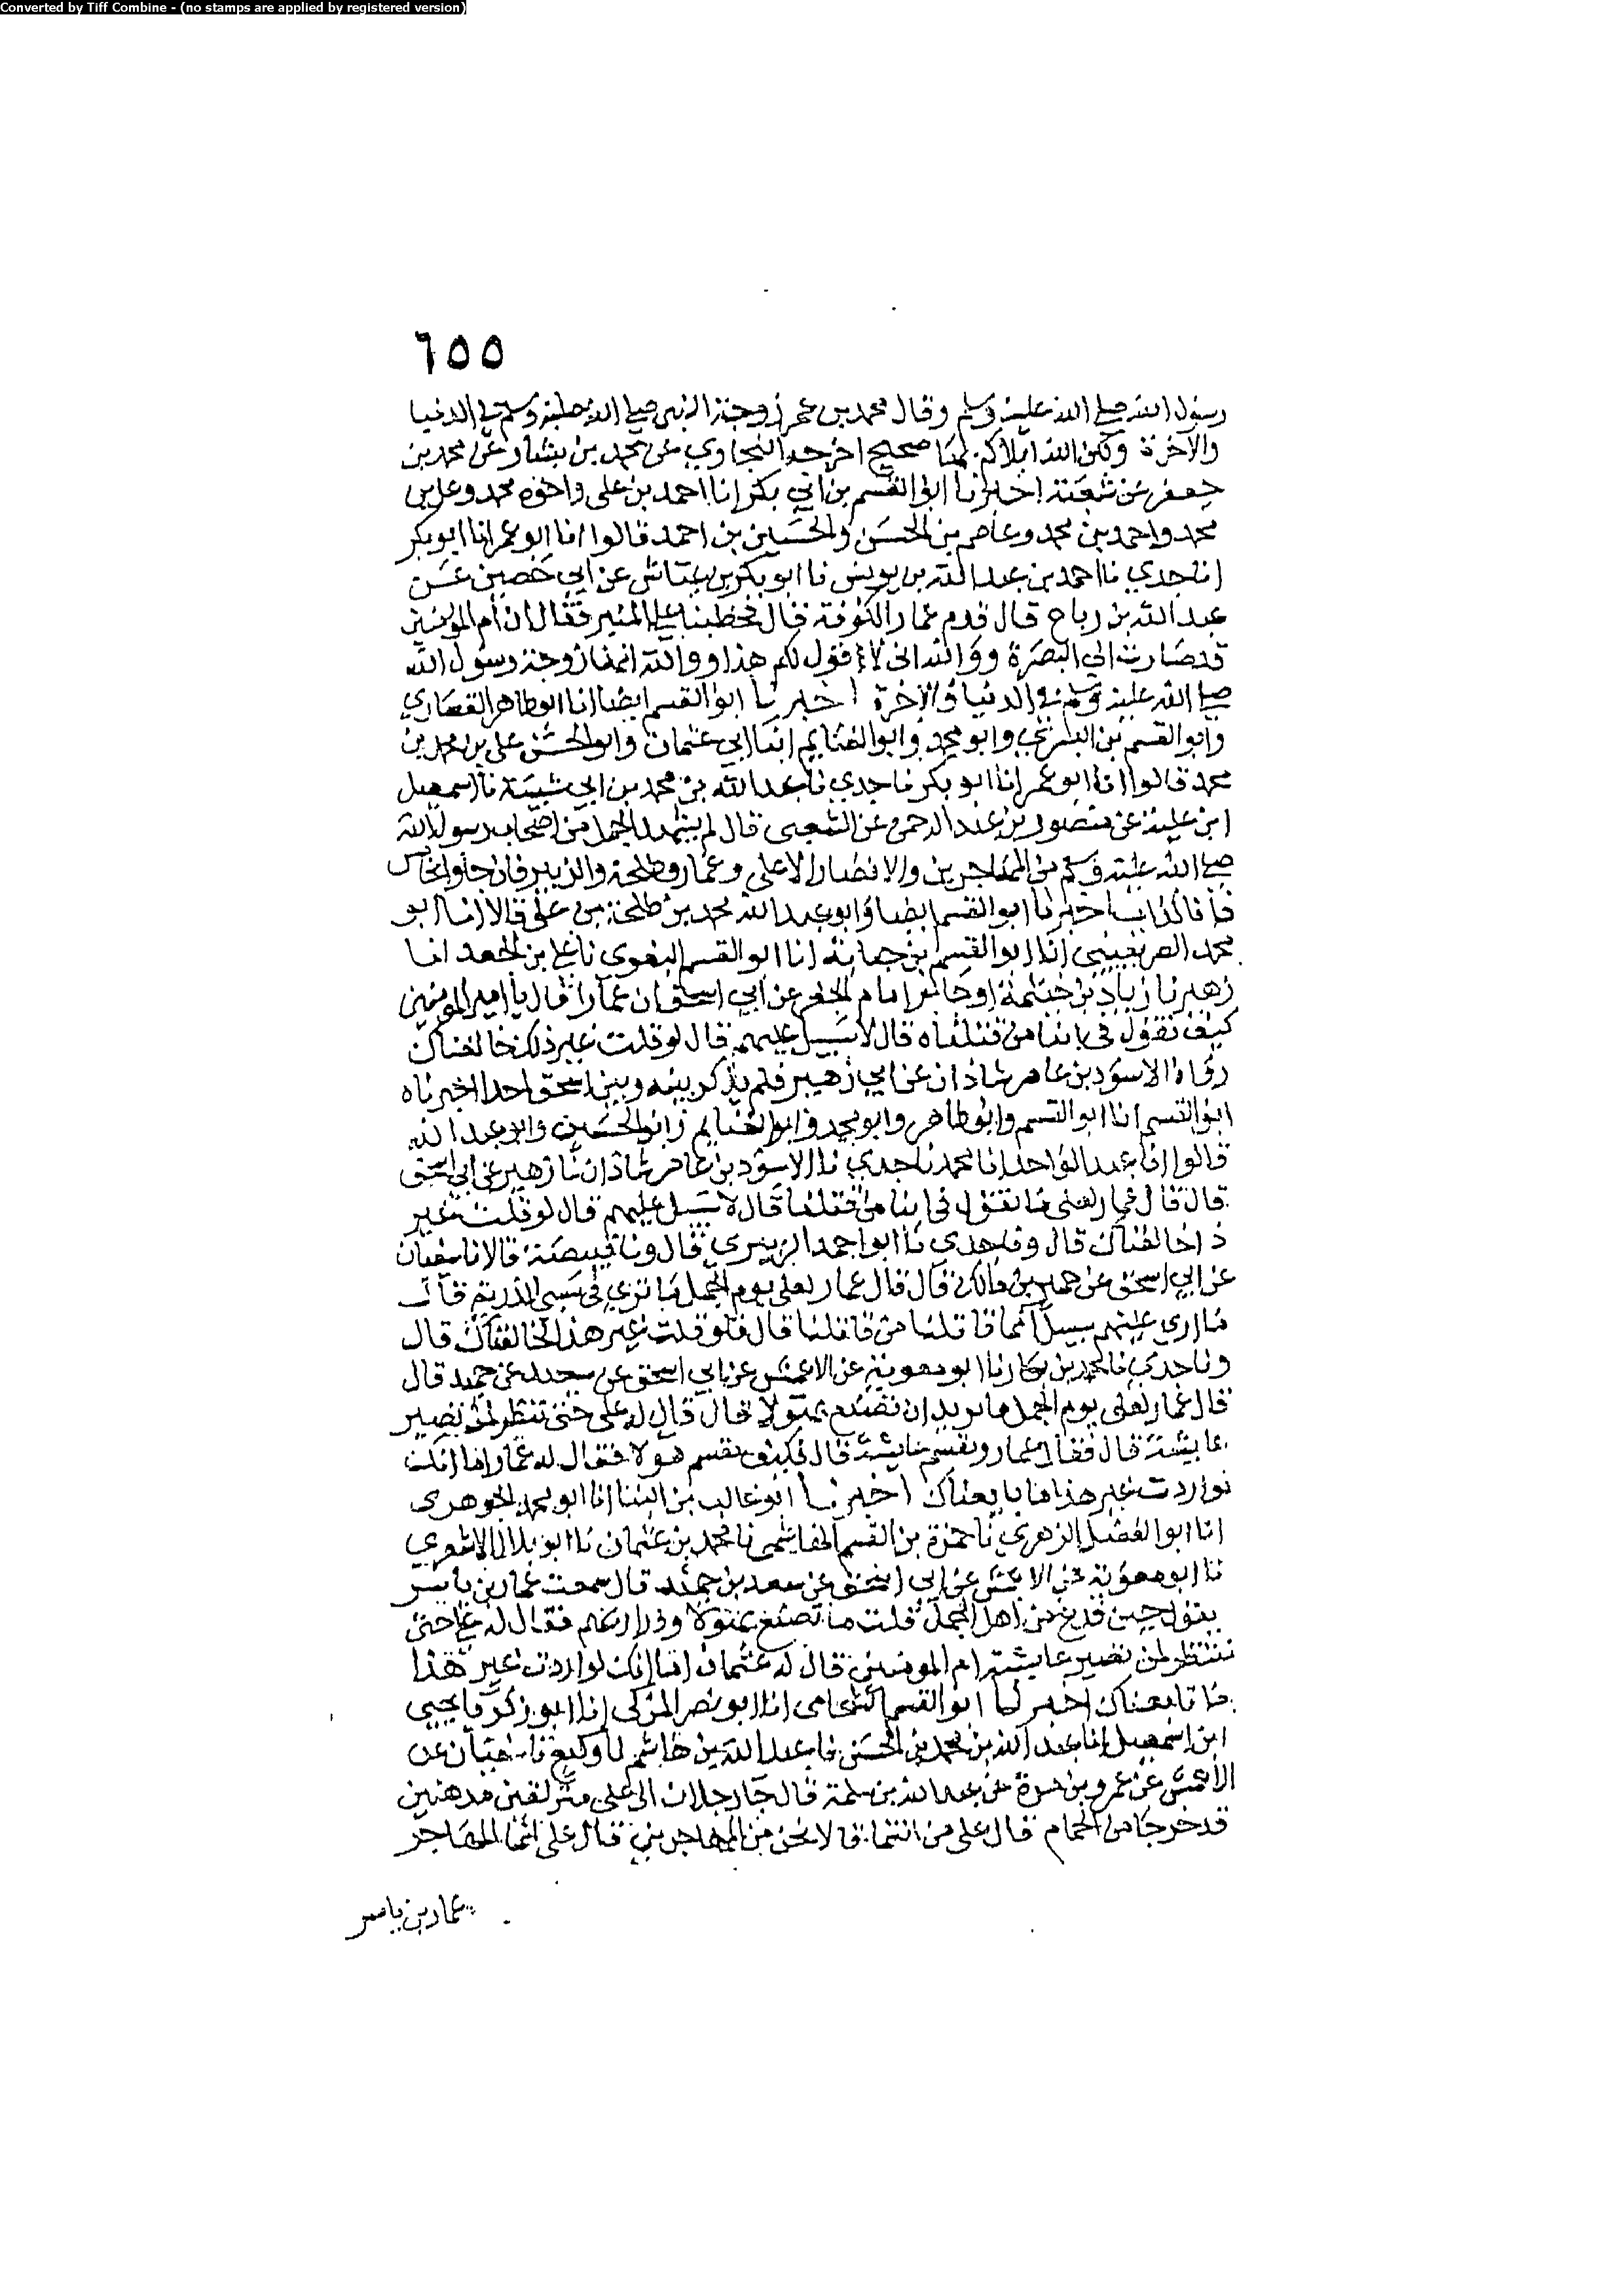 Converted by Tiff Combine - (no stamps are applied by registered version)
٦٥٥
رسول الله صلى الله عليه وسلم وقال محمد بن عمر زوجة النبي صلى الله عليه وسلم في الدنيا
والآخرة ولكن الله ابلاكم بها صحيح اخرجه البخاري عن محمد بن بشار عن محمد بن
جعفر عن شعبة اخبرنا ابو القسم بن ابي بكر انا احمد بن علي واخوه محمد وعلي بن
محمد واحمد بن محمد وعاصم بن الحسن والحسين بن احمد قالوا انا ابو عمر انا ابو بكر
انا جدي نا احمد بن عبد الله بن يونس نا ابو بكر بن عياش عن ابي حصين عن
عبد الله بن رباح قال قدم عمار الكوفة قال فخطبنا على المنبر فقال ان أم المؤمنين
قد صارت الى البصرة ووالله اني لا اقول لكم هذا ووالله انها زوجة رسول الله
صلى الله عليه وسلم في الدنيا والاخرة اخبرنا ابو القسم ايضا انا ابو طاهر القصاري
وابو القسم بن البسري وابو محمد وابو الغنايم ابنا ابي عثمان وابو الحسن علي بن محمد بن
محمد قالوا انا ابو عمر انا ابو بكر نا جدي نا عبد الله بن محمد بن ابي شيبة نا اسمعيل
ابن علية عن منصور بن عبد الرحمن عن الشعبي قال لم يشهد الجمل من اصحاب رسول الله
صلى الله عليه وسلم من المهاجرين والانصار الا علي وعمار وطلحة والزبير فان جاوا بخامس
فأنا كذاب اخبرنا ابو القسم ايضا وابو عبد الله محمد بن طلحة بن علي قالا انا ابو
محمد الصريفيني انا ابو القسم بن حبابة انا ابو القسم البغوي نا علي بن الجعد انا
زهير نا زياد بن خيثمة او جابر امام الجفر عن ابي اسحق ان عمارا قال يا امير المؤمنين
كيف تقول في ابنا من قتلناه قال لا سبيل عليهم قال لو قلت غير ذلك خالفناك
رواه الاسود بن عامر شاذان عن ابي زهير فلم يذكر بينه وبين اسحق احدا اخبرناه
ابو القسم انا ابو القسم وابو طاهر وابو محمد وابو الغنايم وابو الحسين وابو عبد الله
قالوا انا عبد الواحد انا محمد نا جدي نا الاسود بن عامر شاذان نا زهير عن ابي اسحق
قال قال عمار لعلي ما تقول في ابنا من قتلنا قال لا سبيل عليهم قال لو قلت غير
ذا خالفناك قال ونا جدي نا ابو احمد الزبيري قال ونا قبيصة قالا نا سفيان
عن ابي اسحق عن حمير بن مالك قال قال عمار لعلي يوم الجمل ما ترى في سبي الذرية قال
ما ارى عليهم سبيلا انما قاتلنا من قاتلنا قال فلو قلت غير هذا لخالفناك قال
ونا جدي نا محمد بن بكار نا ابو معوية عن الاعمش عن ابي اسحق عن سعيد عن حميد قال
قال عمار لعلي يوم الجمل ما تريد ان تصنع بهولا قال قال له علي حتى تنظر لمن تصير
عايشة قال فقال عمار ونقسم عايشة قال فكيف نقسم هولا فقال له عمار اما انك
لو اردت غير هذا ما بايعناك اخبرنا ابو غالب بن البنا انا ابو محمد الجوهري
انا ابو الفضل الزهري نا حمزة بن القسم الهاشمي نا محمد بن عثمان نا ابو بلال الاشعري
نا ابو معوية عن الاعمش عن ابي اسحق عن سعد بن حميد قال سمعت عمار بن ياسر
يقول حين فرغ من اهل الجمل قلت ما تصنع بهولا وذراريهم فقال له علي حتى
ننتظر لمن تصير عايشة ام المومنين قال له عثمان اما انك لو اردت غير هذا
ما تابعناك اخبرنا ابو القسم الشحامي انا ابو نصر المزكي انا ابو زكريا يحيى
ابن اسمعيل انا عبد الله بن محمد بن الحسن نا عبد الله بن هاشم نا وكيع نا سفيان عن
الأعمش عن عمرو بن مرة عن عبد الله بن سلمة قال جا رجلان الى علي متزلقين مدهنين
قد خرجا من الحمام قال علي من انتما قالا نحن من المهاجرين قال علي انما المهاجر
عمار بن ياسر